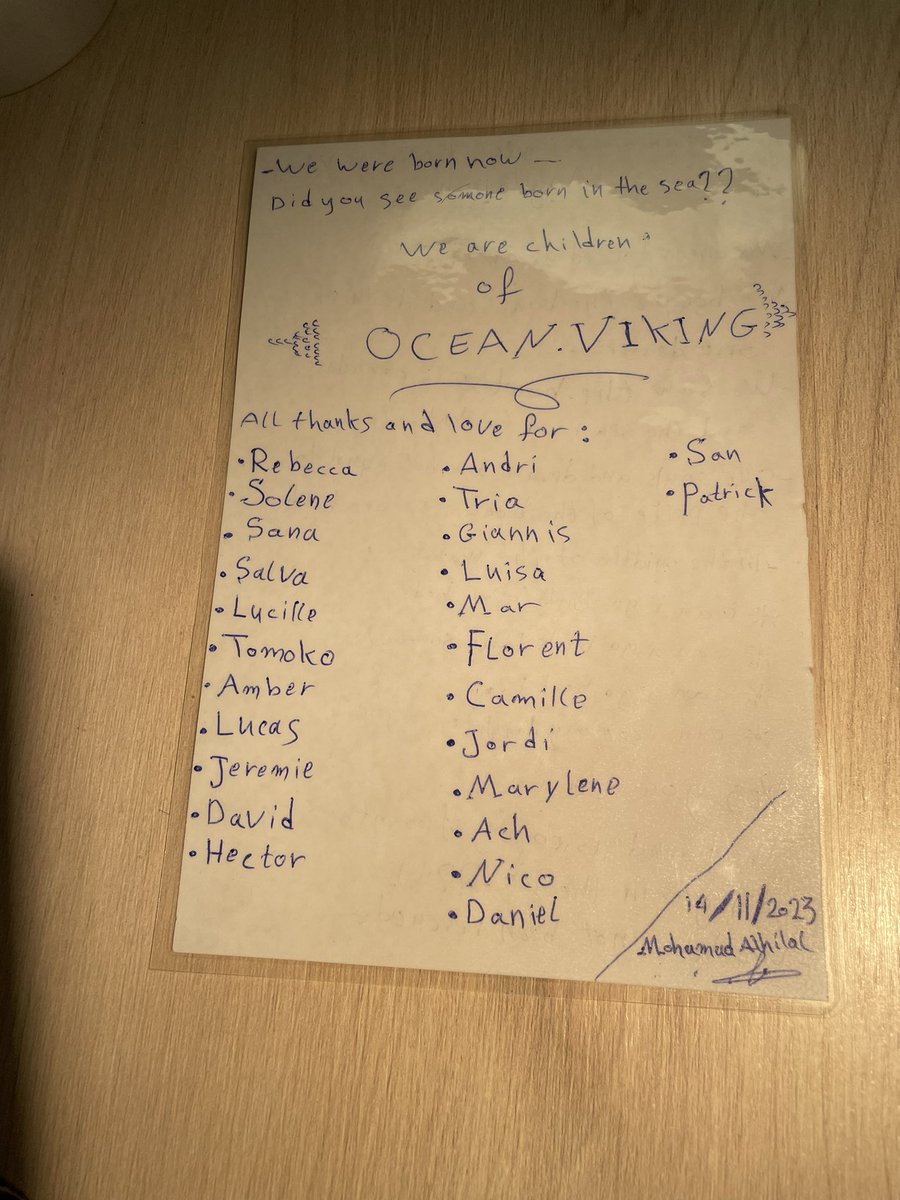 - We were born now -
Did you see somone born in the sea??
We are children
of
OCEAN.VIKING
All thanks and love for:
• Rebecca
• Solene
• Sana
• Salva
• Lucille
• Tomoko
• Amber
• Lucas
• Jeremie
• David
• Hector
• Andri
• Tria
• Giannis
• Luisa
• Mar
• Florent
• Camille
• Jordi
• Marylene
• Ach
• Nico
• Daniel
• San
• Patrick
14/11/2023
Mohamad Alhilal